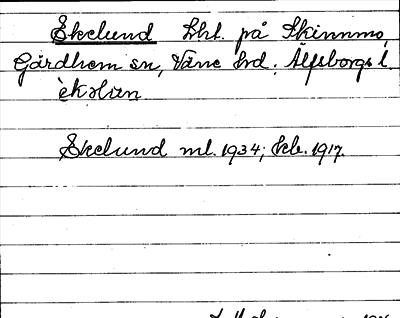 Ekelund Lht. på Skinnmo,
Gärdhem sn, Väne hd. Älfsborgs l.
èkəlɯn
Ekelund ml. 1934; kb. 1917.